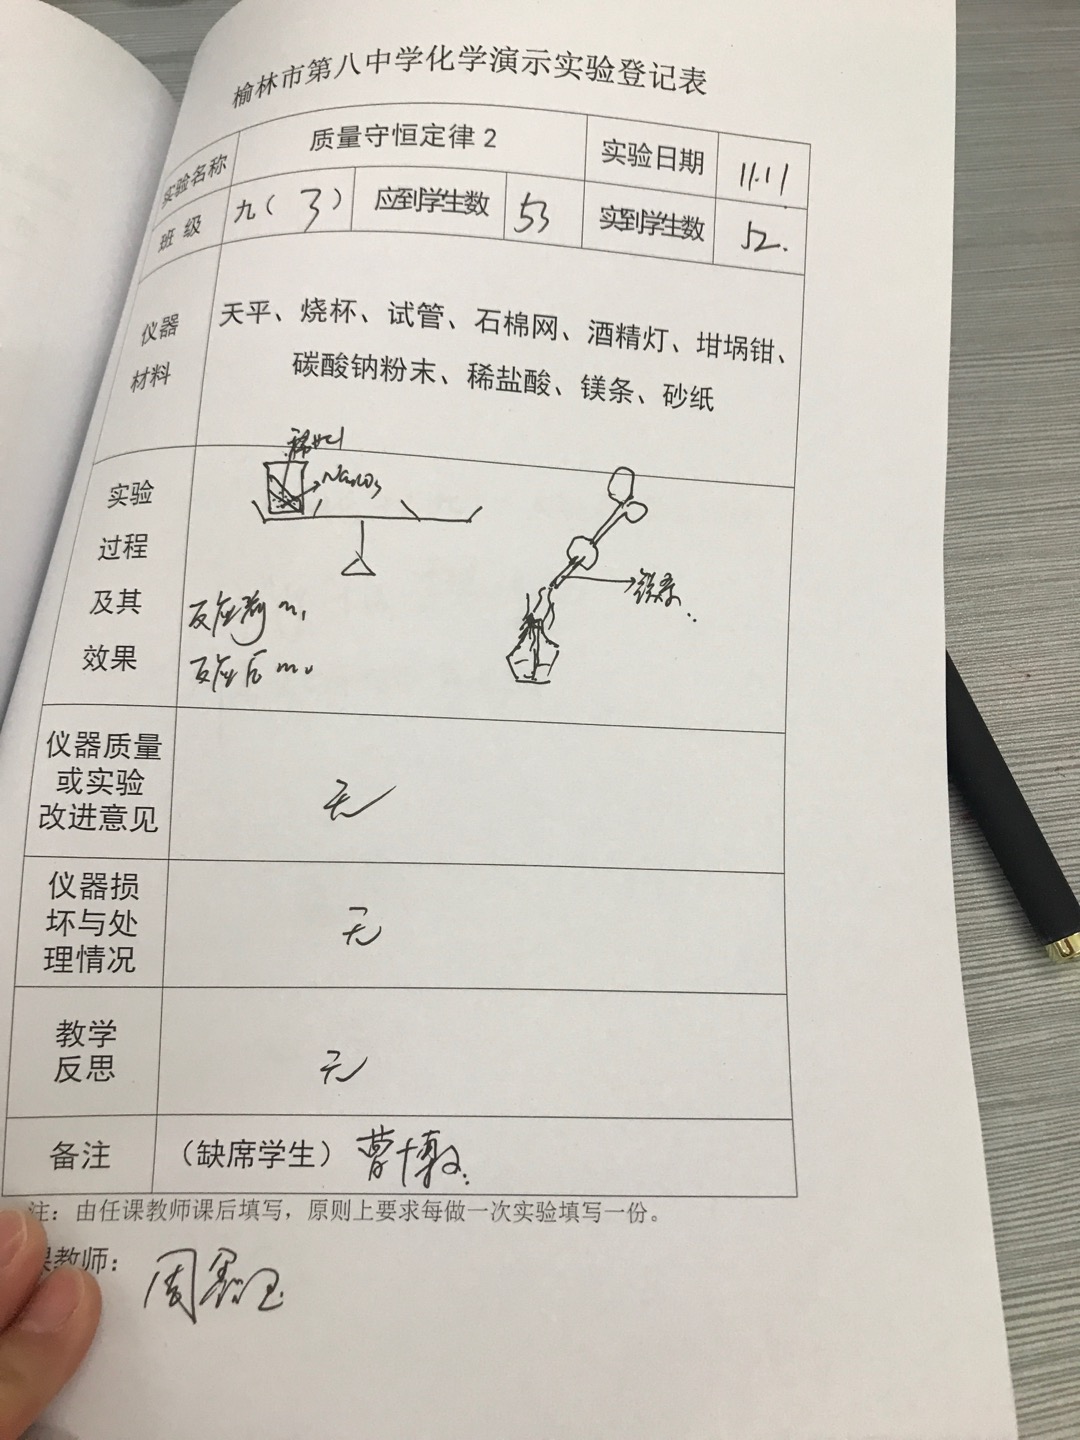 榆林市第八中学化学演示实验登记表
实验名称 质量守恒定律2 实验日期 11.11
班 级 九（3） 应到学生数 53 实到学生数 52.
仪器
材料
天平、烧杯、试管、石棉网、酒精灯、坩埚钳、
碳酸钠粉末、稀盐酸、镁条、砂纸
实验
过程
及其
效果
稀HCl
Na₂CO₃
反应前 m₁
反应后 m₂
仪器质量
或实验
改进意见
无
仪器损
坏与处
理情况
无
教学
反思
无
备注 （缺席学生）曹
注：由任课教师课后填写，原则上要求每做一次实验填写一份。
课教师：周